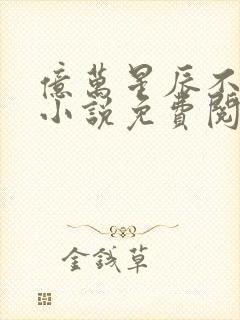 億萬星辰不
小說免費閱
金錢草